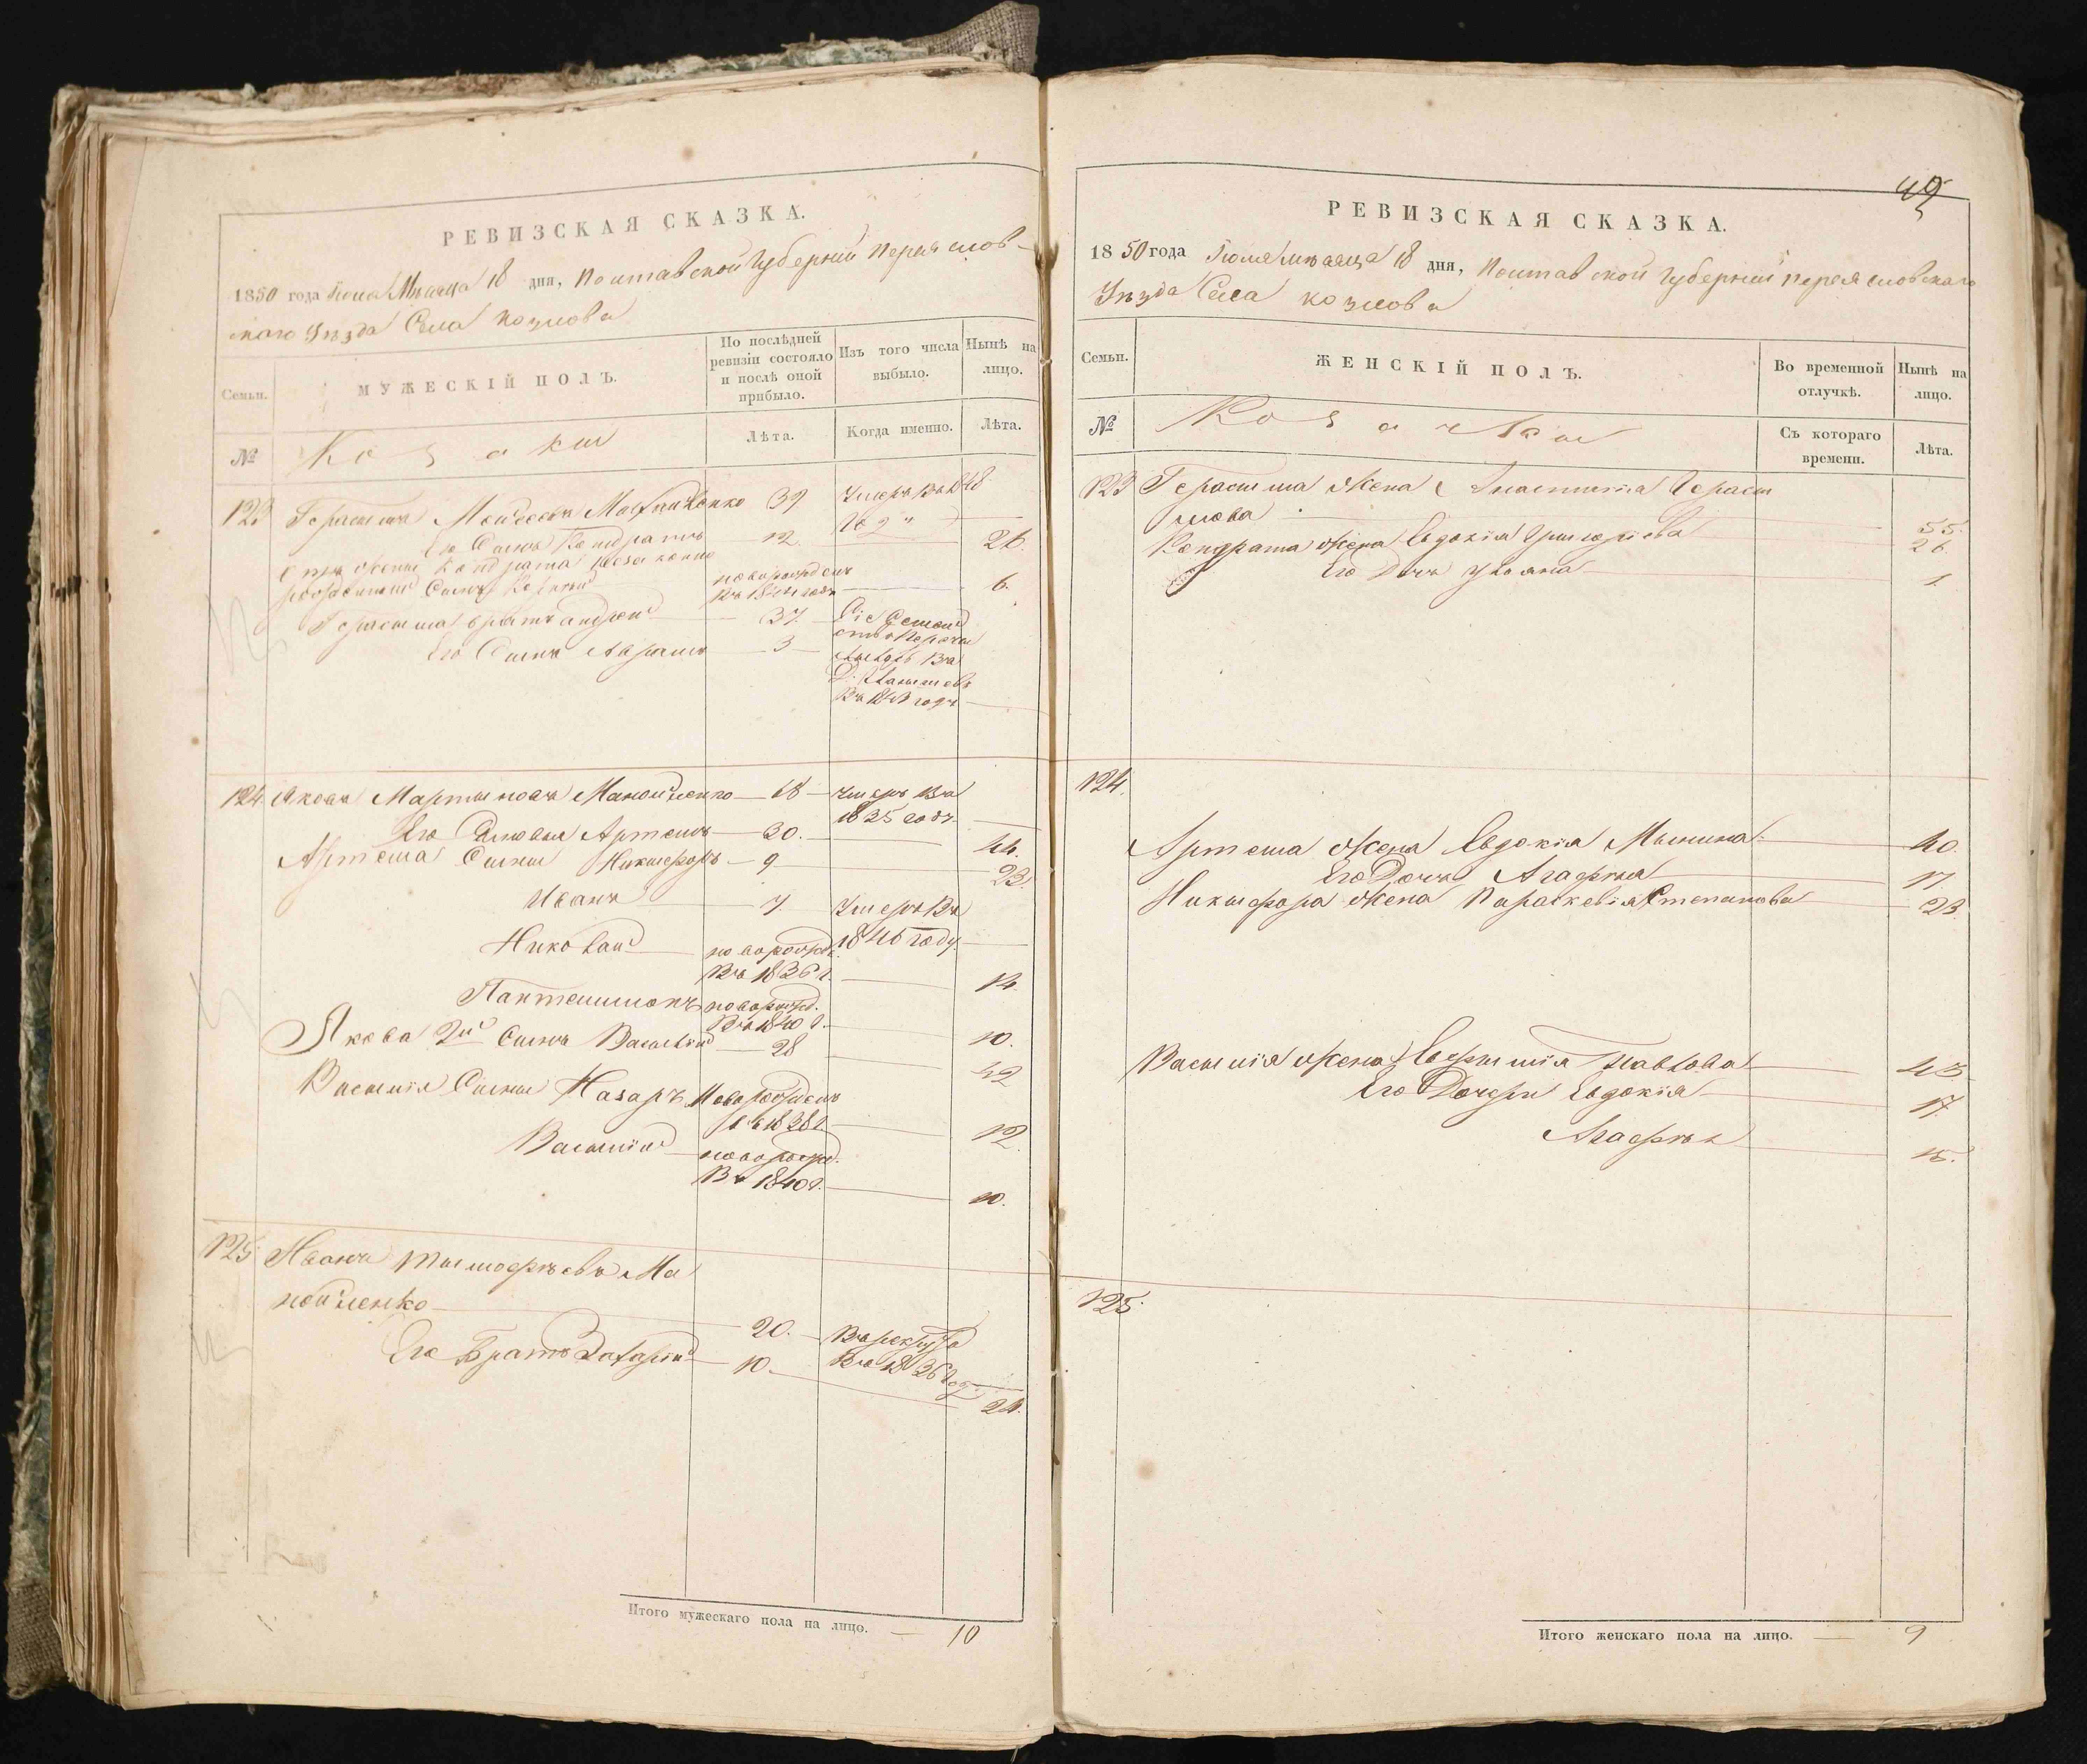 РЕВИЗСКАЯ СКАЗКА.
1850 года Іюля Мѣсяца 18 дня, Полтавской Губерніи Переяслов-
скаго Уѣзда Села Козлова
Семьи.
МУЖЕСКІЙ ПОЛЪ.
По послѣдней ревизіи состояло и послѣ оной прибыло.
Изъ того числа выбыло.
Нынѣ на лицо.
№
Козаки
Лѣта.
Когда именно.
Лѣта.
123 Герасимъ Моисеевъ 39 Умеръ въ 1848
Его Сынъ Кондратъ 12. 28.
отъ жены Кондрата
рожденный Сынъ новорожденъ 6.
въ 1844 годѣ
Герасима братъ Андрей 37. Сіе Семей
ство Пере
Его Сынъ Аврамъ 3
въ
въ 1843 годѣ
124. Яковъ Мартыновъ Манойленко 68 Умеръ въ
1835 годѣ.
Его Сыновья Артемъ 30. 44.
Артема Сыны Никифоръ 9 23.
Иванъ 7. Умеръ въ
1846 году.
Николай новорожд.
въ 1836 г. 14.
Пантелимонъ новорожд.
въ 1840 г. 10.
Якова 2й Сынъ Василій 28 42
Василія Сыны Назаръ Новорожденъ
въ 1838 г. 12.
Василій новорожд.
въ 1840 г. 10.
125 Иванъ Тимофѣевъ Ма
нойленко 20. въ рекруты
въ 1836 год.
Его Братъ Захарій 10. 24.
Итого мужескаго пола на лицо. — 10
49
РЕВИЗСКАЯ СКАЗКА.
1850 года Іюля мѣсяца 18 дня, Полтавской Губерніи Переясловскаго
Уѣзда Села Козлова
Семьи.
ЖЕНСКІЙ ПОЛЪ.
Во временной отлучкѣ.
Нынѣ на лицо.
№
Козачки
Съ котораго времени.
Лѣта.
123 Герасима Жена Анастасія Гераси
мова 55.
Кондрата Жена Евдокія Григоріева 26.
Его Дочь Ульяна 1.
124.
Артема Жена Евдокія 40.
Его Дочь Агафія 17.
Никифора Жена Параскевія Степанова 23.
Василія Жена Евфимія Павлова
Его Дочери Евдокія 17.
Агафія 15.
125.
Итого женскаго пола на лицо. — 9